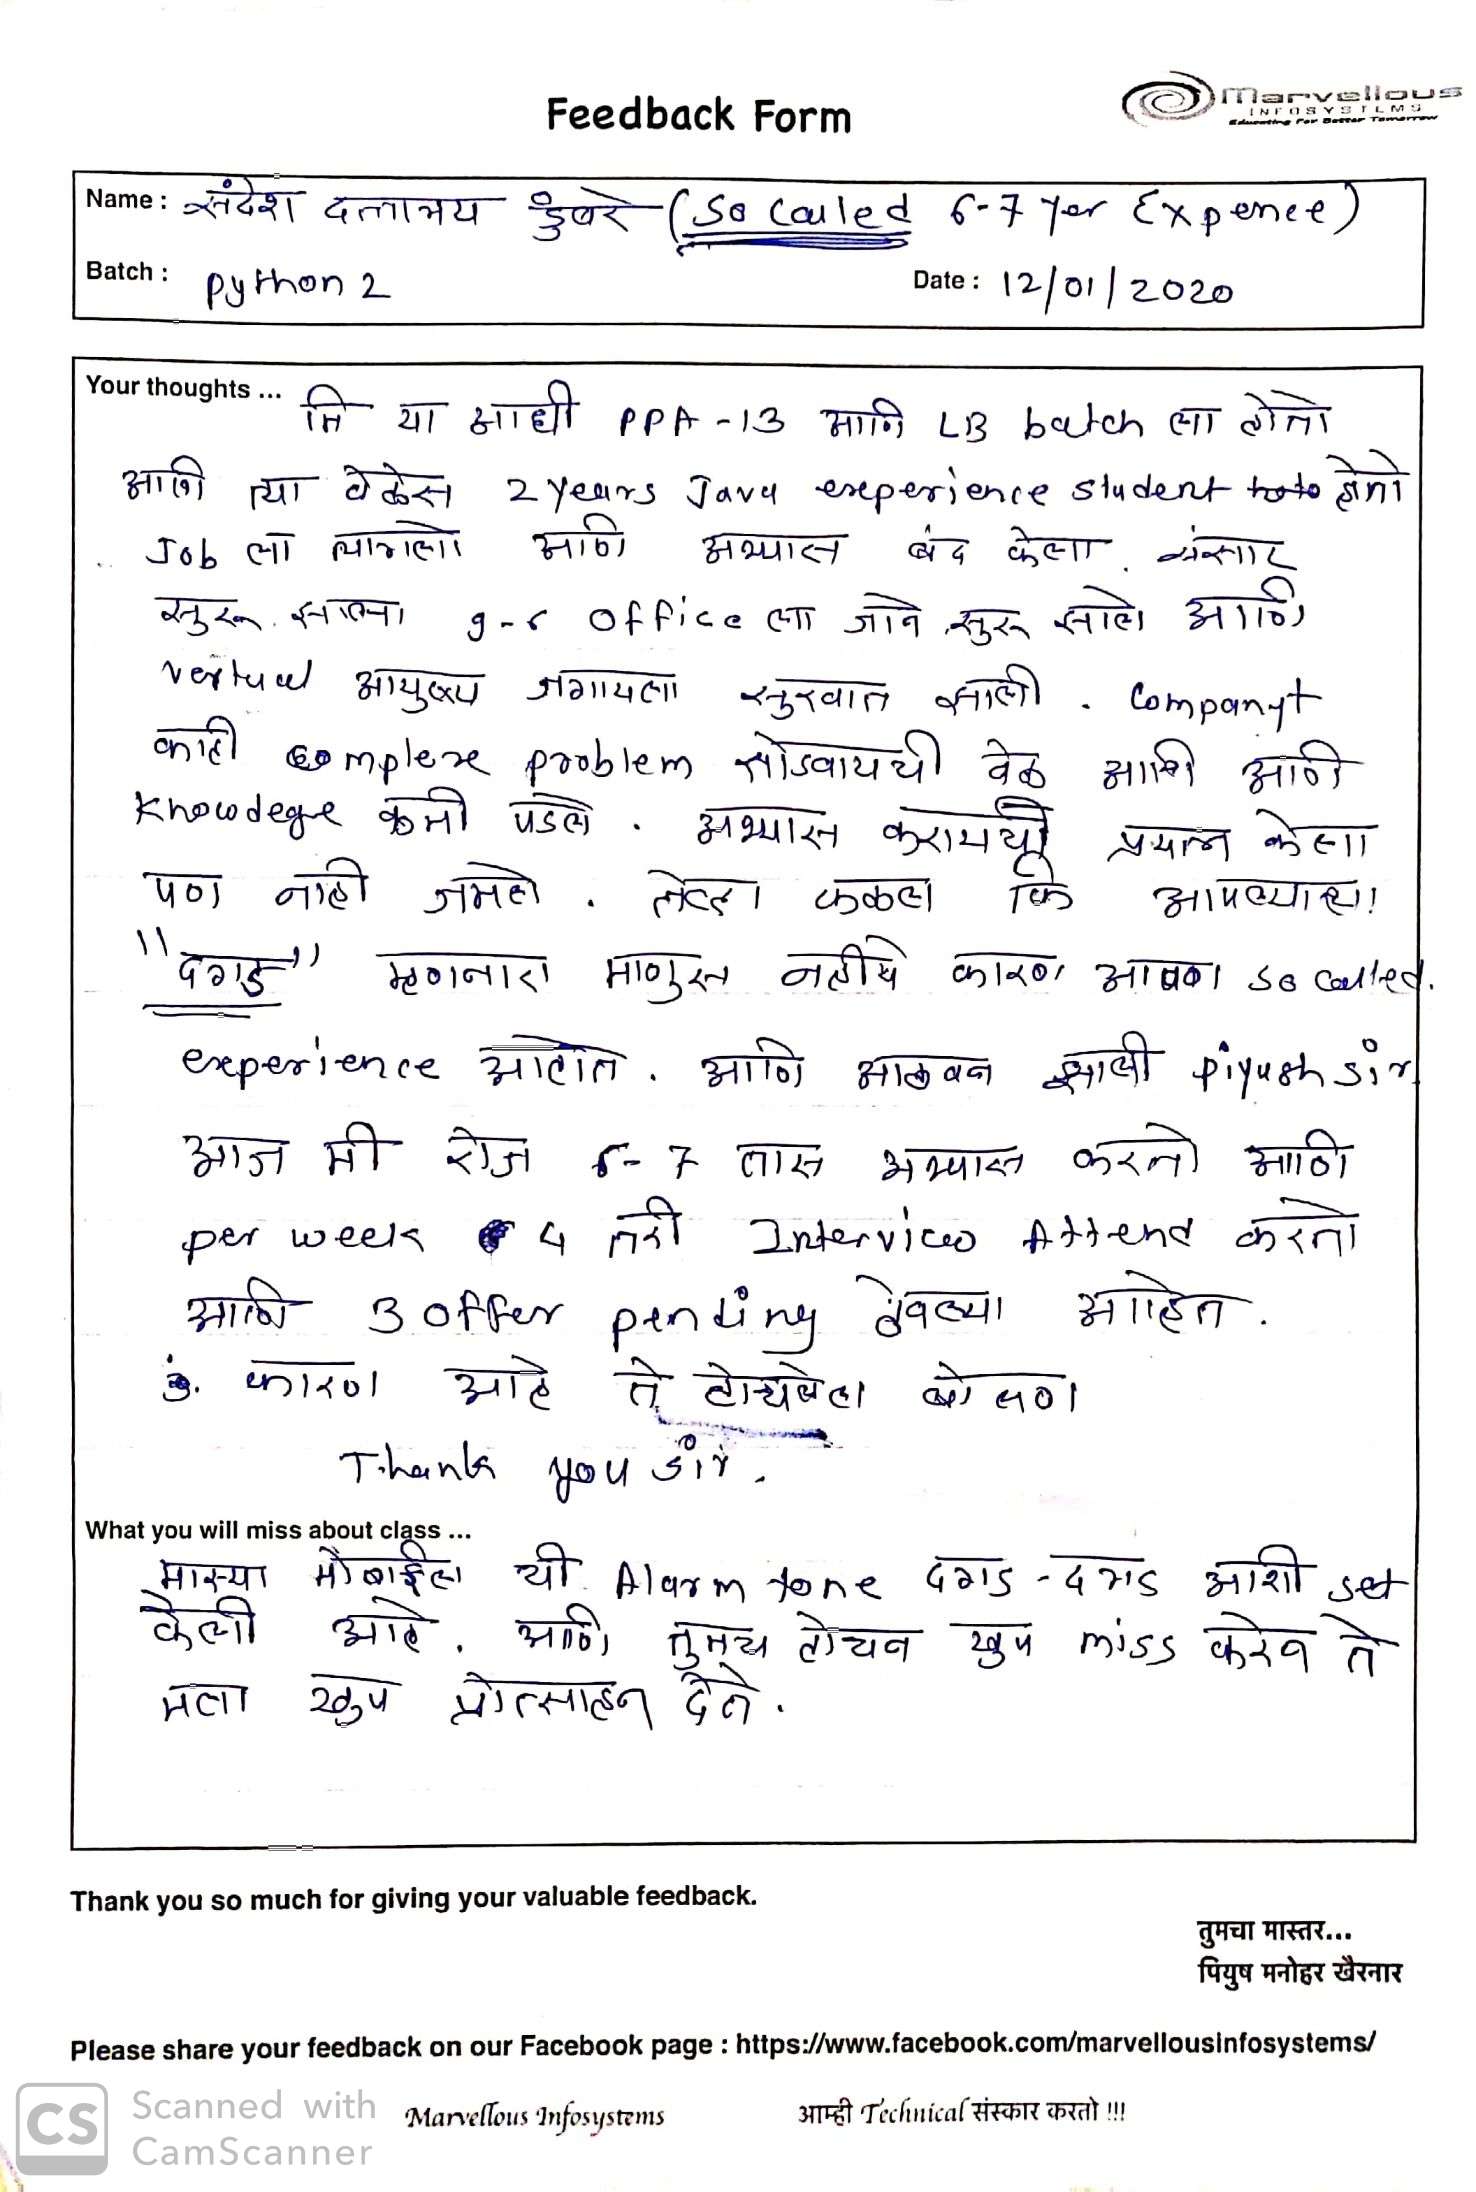 Feedback Form
Marvellous
INFOSYSTEMS
Educating For Better Tomorrow
Name : संदेश दत्तात्रय डुंबरे (So Called 6-7 Yer Expence)
Batch : python 2
Date : 12/01/2020
Your thoughts ...
मि या आधी PPA-13 आणि LB batch ला होतो
आणि त्या वेळेस 2 years Java experience student होतो
Job ला लागलो आणि अभ्यास बंद केला. संसार
सुरू झाला 9-6 office ला जाने सुरू झाले आणि
vertual आयुष्य जगायला सुरवात झाली . Companyt
काही complexe problem सोडवायची वेळ आली आणि
knowdege कमी पडले . अभ्यास करायची प्रयत्न केला
पण नाही जमले . तेव्हा कळल कि आपल्याला
"दगड" म्हणनारा माणुस नहीये कारण आपण so called.
experience आहोत . आणि आठवन झाली piyush sir
आज मी रोज 6-7 तास अभ्यास करतो आणि
per week 4 तरी Interview Attend करतो
आणि 3 offer pending ठेवल्या आहेत .
कारण आहे ते टोचलेला बोलण
Thank you sir.
What you will miss about class ...
माझ्या मोबाईल ची Alarm tone दगड - दगड आशी set
केली आहे . आणि तुमच टोचन खुप miss करेन ते
मला खुप प्रोत्साहन देते .
Thank you so much for giving your valuable feedback.
तुमचा मास्तर...
पियुष मनोहर खैरनार
Please share your feedback on our Facebook page : https://www.facebook.com/marvellousinfosystems/
Marvellous Infosystems
आम्ही Technical संस्कार करतो !!!
CS
Scanned with
CamScanner